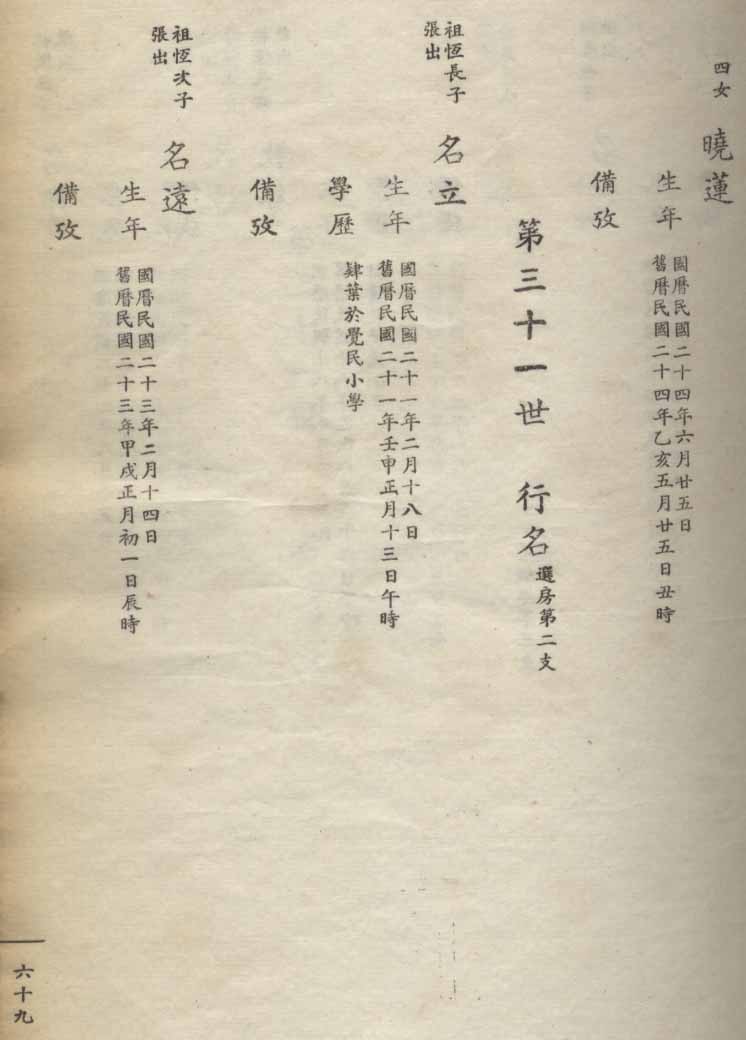 四女
曉蓮
生年
國曆民國二十四年六月廿五日
舊曆民國二十四年乙亥五月廿五日丑時
備攷
第三十一世 行名 選房第二支
祖恆長子
張出
名立
生年
國曆民國二十一年二月十八日
舊曆民國二十一年壬申正月十三日午時
學歷
肄業於覺民小學
備攷
祖恆次子
張出
名遠
生年
國曆民國二十三年二月十四日
舊曆民國二十三年甲戌正月初一日辰時
備攷
六十九